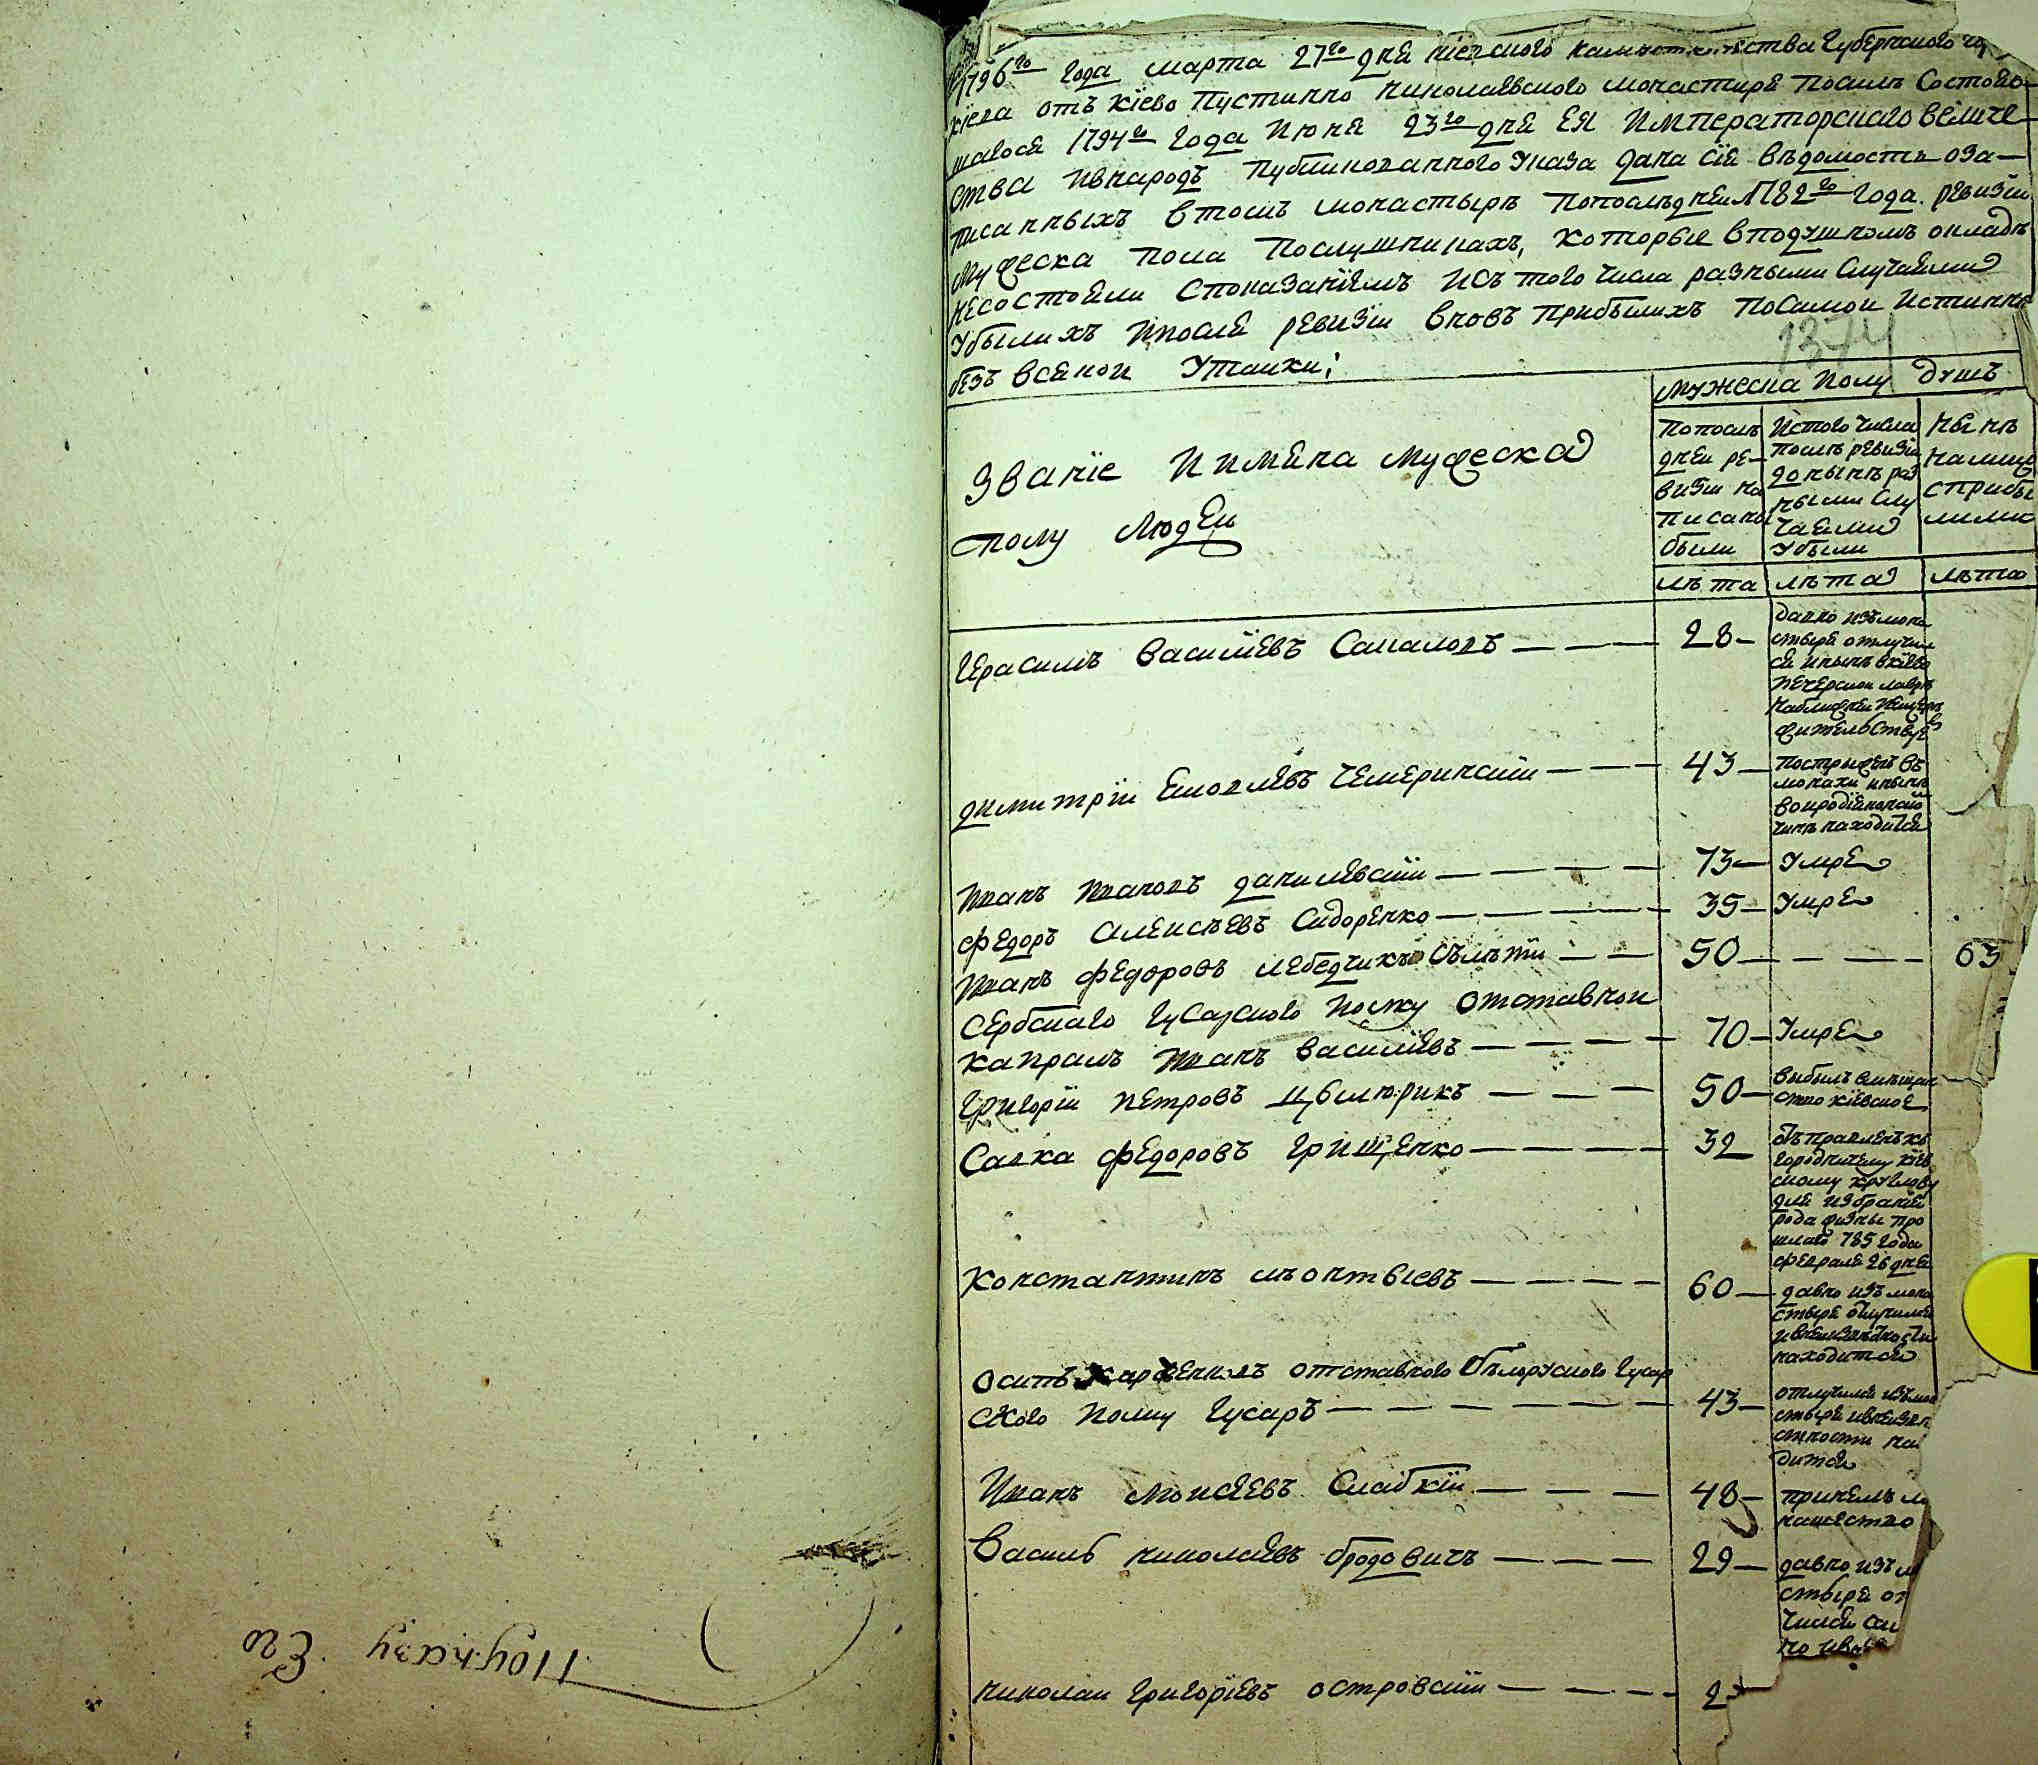 1796го Года марта 27го дня кіевского намѣстничества Губернского го
кіева отъ кіево пустинно николаевского монастиря посилѣ Состояв
шагося 1794го Года июня 23го дня ЕЯ Императорского величе
ства ивнародъ публикованного Указа дана сія вѣдомость оза-
писанныхъ втомъ монастырѣ попослѣдней 1782го Года ревизіи
мужеска пола послушникахъ, которые вподушномъ окладѣ
несостояли споказаніемъ исъ того числа разными случаями
убылихъ ипослѣ ревизіи вновъ прибылихъ посамой истиннѣ
безъ всякой утайки;
1374
мужеска полу душъ
званіе иимена мужеска
полу людей
попослѣ
дней ре-
визіи на
писаны
были
Истого числа
послѣ ревизіи
донынѣ раз
ными слу
чаями
убыли
нынѣ
налицо
сприбы
лими
лѣта лѣта лѣта
Герасимъ василіевъ Самаловъ — — — 28 —
давно изъмона
стыря отлучил
ся инынѣ вкіево
печерской лаврѣ
наближней пещерѣ
жительствуе
димитрій Яковлевъ Чемеринскій — — — 43 —
постриженъ въ
монахи инынѣ
воиродіаконском
чинѣ находится
Иванъ Ивановъ данилевскій — — — — 73 — умре
федоръ алексѣевъ Сидоренко — — — — 35 — умре
Иванъ федоровъ лебедчикъ Сълѣтій — — 50 — — — — 63
сербского гусарского полку отставной
капралъ Иванъ василіевъ — — — — 70 — умре
Григорій петровъ цвилюрикъ — — — 50 —
выбылъ вмѣщан
ство кіевское
Савка федоровъ Грищенко — — — — 32
отъправленъ къ
городничему кіев
скому круглову
для избранія
рода жизны про
шлаго 785 года
февраля 26 дня
Константинъ лѣонтвіевъ — — — — 60 —
давно изъ мона
стыря отлучился
ивнеизвѣстности
находится
осипъ карпенковъ отставного бѣлорусского Гусар
ского полку Гусаръ — — — — — — — 43 —
отлучился изъмона
стыря ивнеизвѣ
стности нах
дится
Иванъ моисеевъ Слабкій — — — 48 —
принялъ мо
нашество
василь николаевъ бродовичъ — — — 29 —
давно изъ м
стыря от
чился
но ивъ
николай Григоріевъ островскій — — — — 2
Поуказу Ея